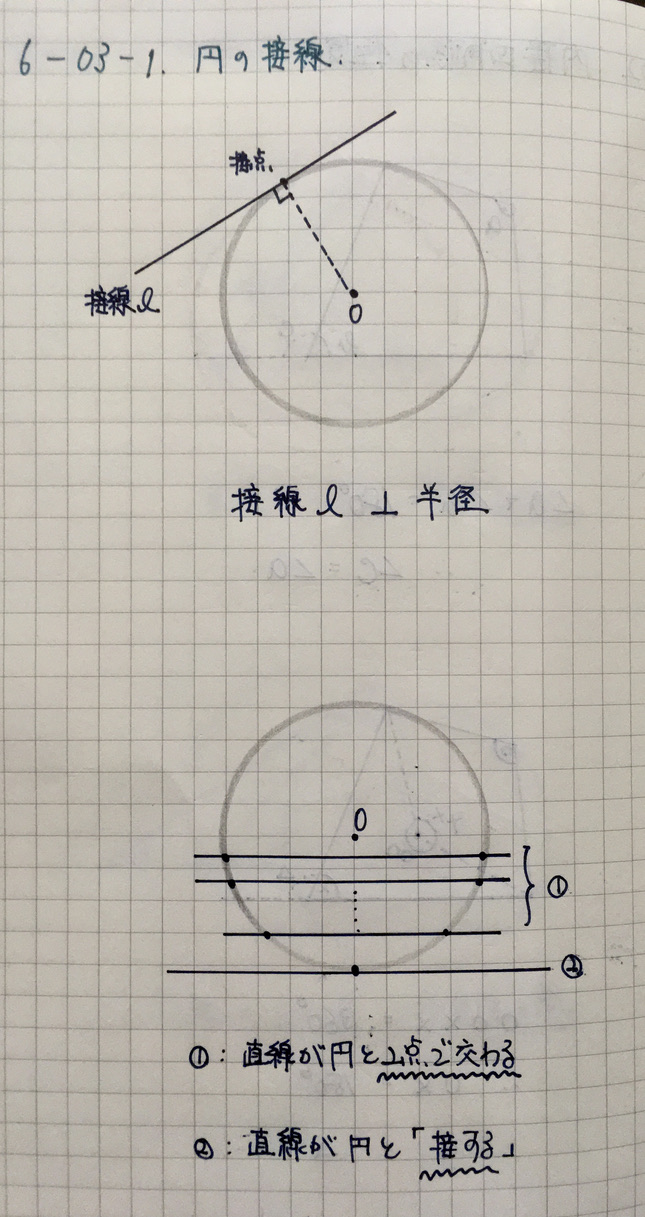 6-03-1. 円の接線.
接点.
接線 l
O
接線 l ⊥ 半径
O
①
②
①: 直線が円と2点で交わる
②: 直線が円と「接する」